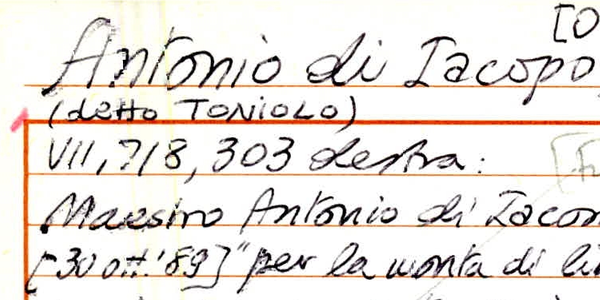 [O
Antonio di Iacopo,
(detto TONIOLO)
VII, 718, 303 destra:
Maestro Antonio di Iacom
[30 ott. '89] "per la monta di li